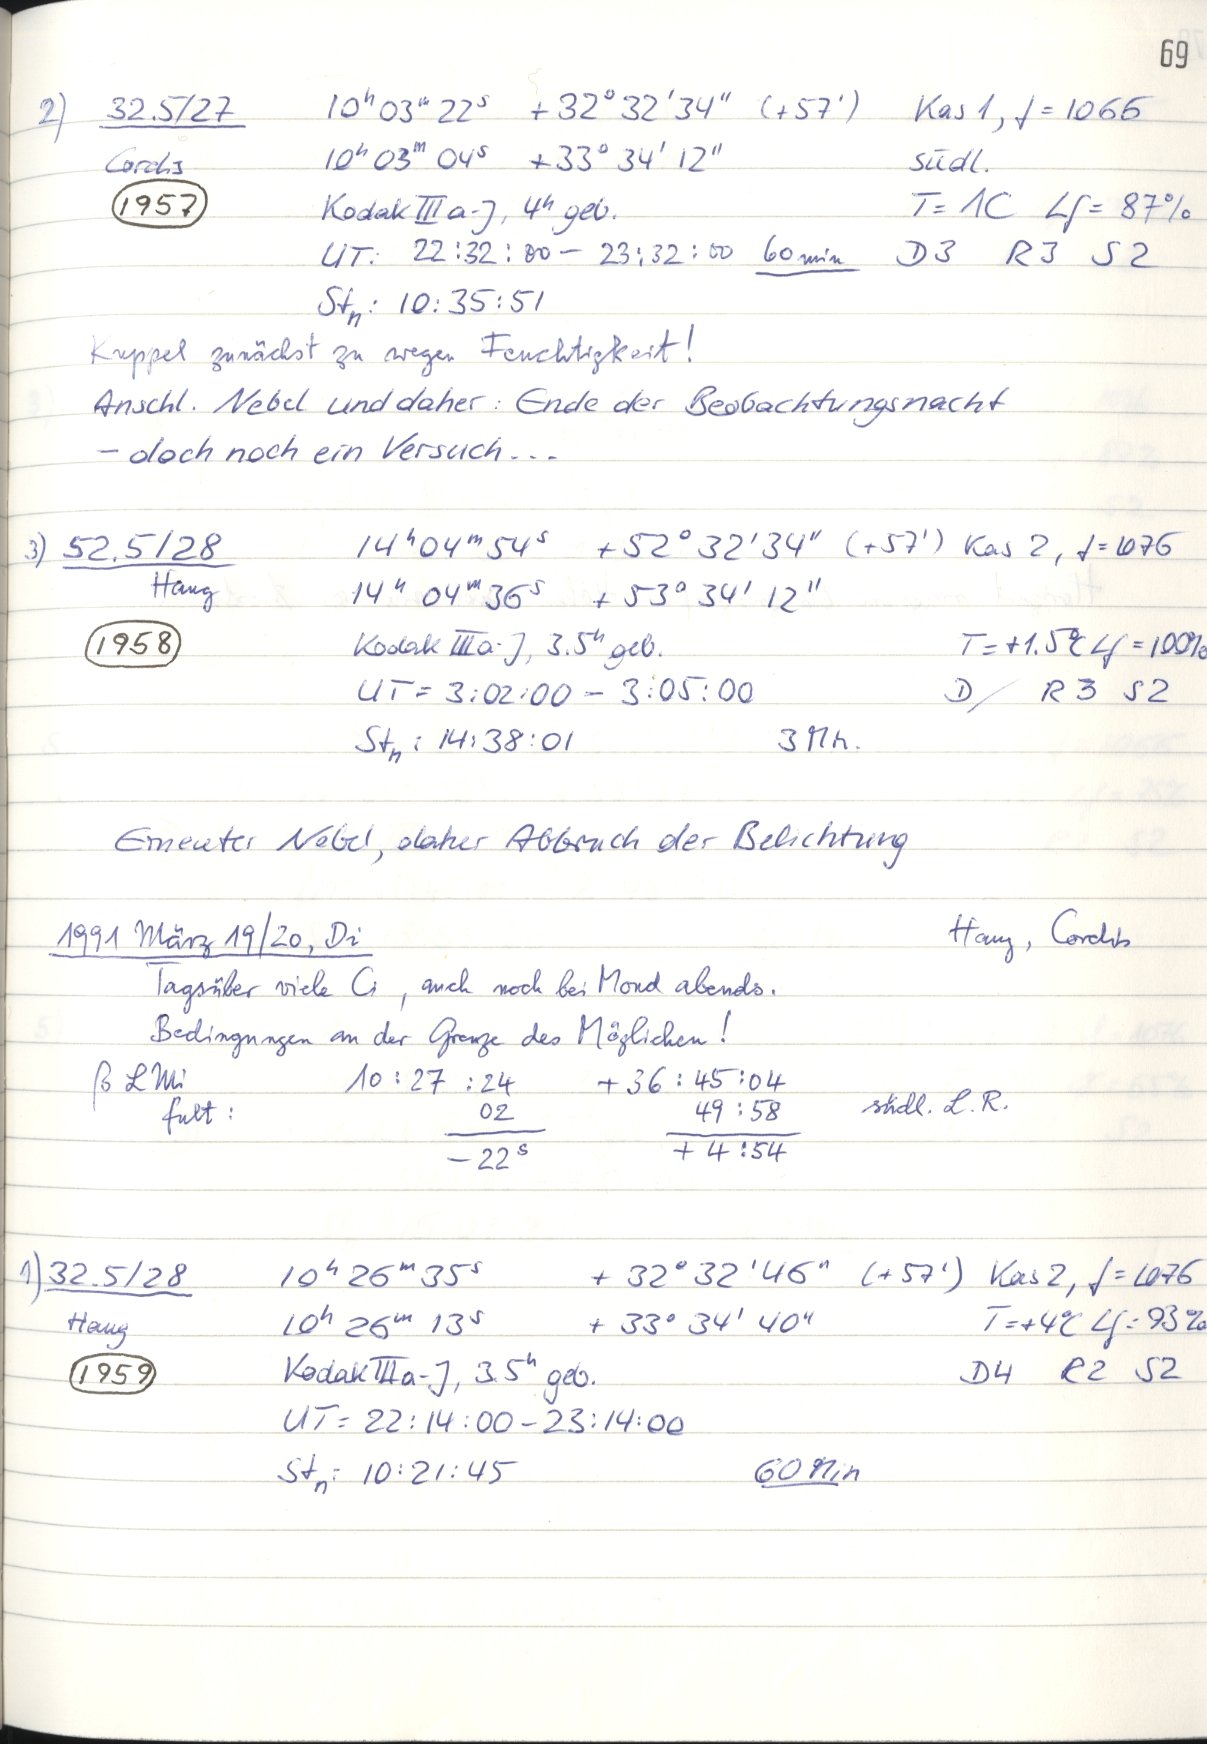 69
2) 32.5/27 10ʰ 03ᵐ 22ˢ +32° 32' 34" (+57') Kas 1, f = 1066
Cordes 10ʰ 03ᵐ 04ˢ +33° 34' 12" südl.
1957 Kodak III a-J, 4ʰ geb. T = 1C Lf = 87%
UT: 22:32:00 - 23:32:00 60 min D3 R3 S2
Stₙ: 10:35:51
Kuppel zunächst zu wegen Feuchtigkeit!
Anschl. Nebel und daher: Ende der Beobachtungsnacht
- doch noch ein Versuch...
3) 52.5/28 14ʰ 04ᵐ 54ˢ +52° 32' 34" (+57') Kas 2, f = 1076
Haug 14ʰ 04ᵐ 36ˢ +53° 34' 12"
1958 Kodak III a-J, 3.5ʰ geb. T = +1.5°C Lf = 100%
UT = 3:02:00 - 3:05:00 D/ R3 S2
Stₙ: 14:38:01 3 Mn.
Erneuter Nebel, daher Abbruch der Belichtung
1991 März 19/20, Di Haug, Cordes
Tagsüber viele Ci, auch noch bei Mond abends.
Bedingungen an der Grenze des Möglichen!
β LMi 10:27:24 +36:45:04
02 49:58 südl. L.R.
-22ˢ +4:54
1) 32.5/28 10ʰ 26ᵐ 35ˢ +32° 32' 46" (+57') Kas 2, f = 1076
Haug 10ʰ 26ᵐ 13ˢ +33° 34' 40" T = +4°C Lf = 93%
1959 Kodak III a-J, 3.5ʰ geb. D4 R2 S2
UT = 22:14:00 - 23:14:00
Stₙ: 10:21:45 60 Min